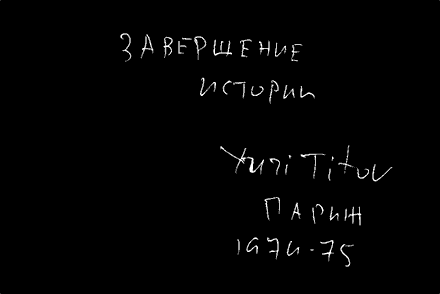 ЗАВЕРШЕНИЕ
ИСТОРИИ
Yuri Titov
ПАРИЖ
1974-75